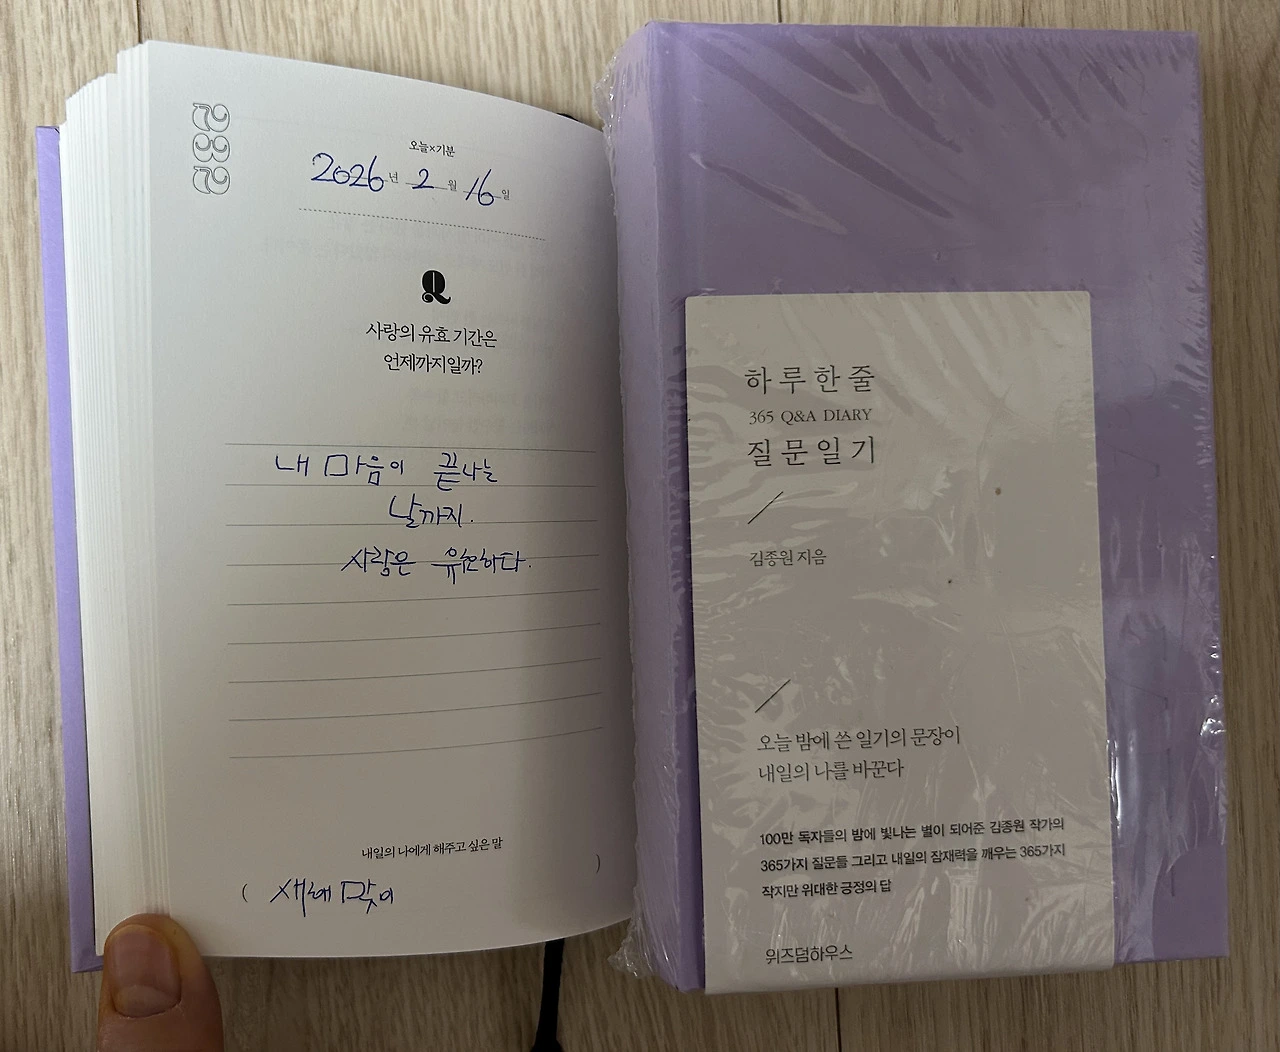 232
오늘×기분
2026년 2월 16일
Q
사랑의 유효 기간은
언제까지일까?
내 마음이 끝나는
날까지.
사랑은 유효하다.
내일의 나에게 해주고 싶은 말
( 새해 맞이 )
하루 한 줄
365 Q&A DIARY
질문일기
김종원 지음
오늘 밤에 쓴 일기의 문장이
내일의 나를 바꾼다
100만 독자들의 밤에 빛나는 별이 되어준 김종원 작가의
365가지 질문들 그리고 내일의 잠재력을 깨우는 365가지
작지만 위대한 긍정의 답
위즈덤하우스